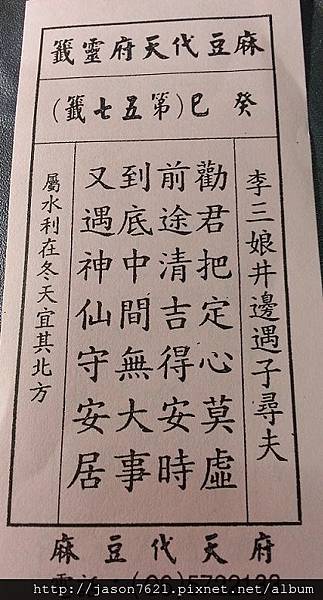 麻豆代天府靈籤
癸巳(第五七籤)
李三娘井邊遇子尋夫
勸君把定心莫虛
前途清吉得安時
到底中間無大事
又遇神仙守安居
屬水利在冬天宜其北方
麻豆代天府
http://jason7621.pixnet.net/album